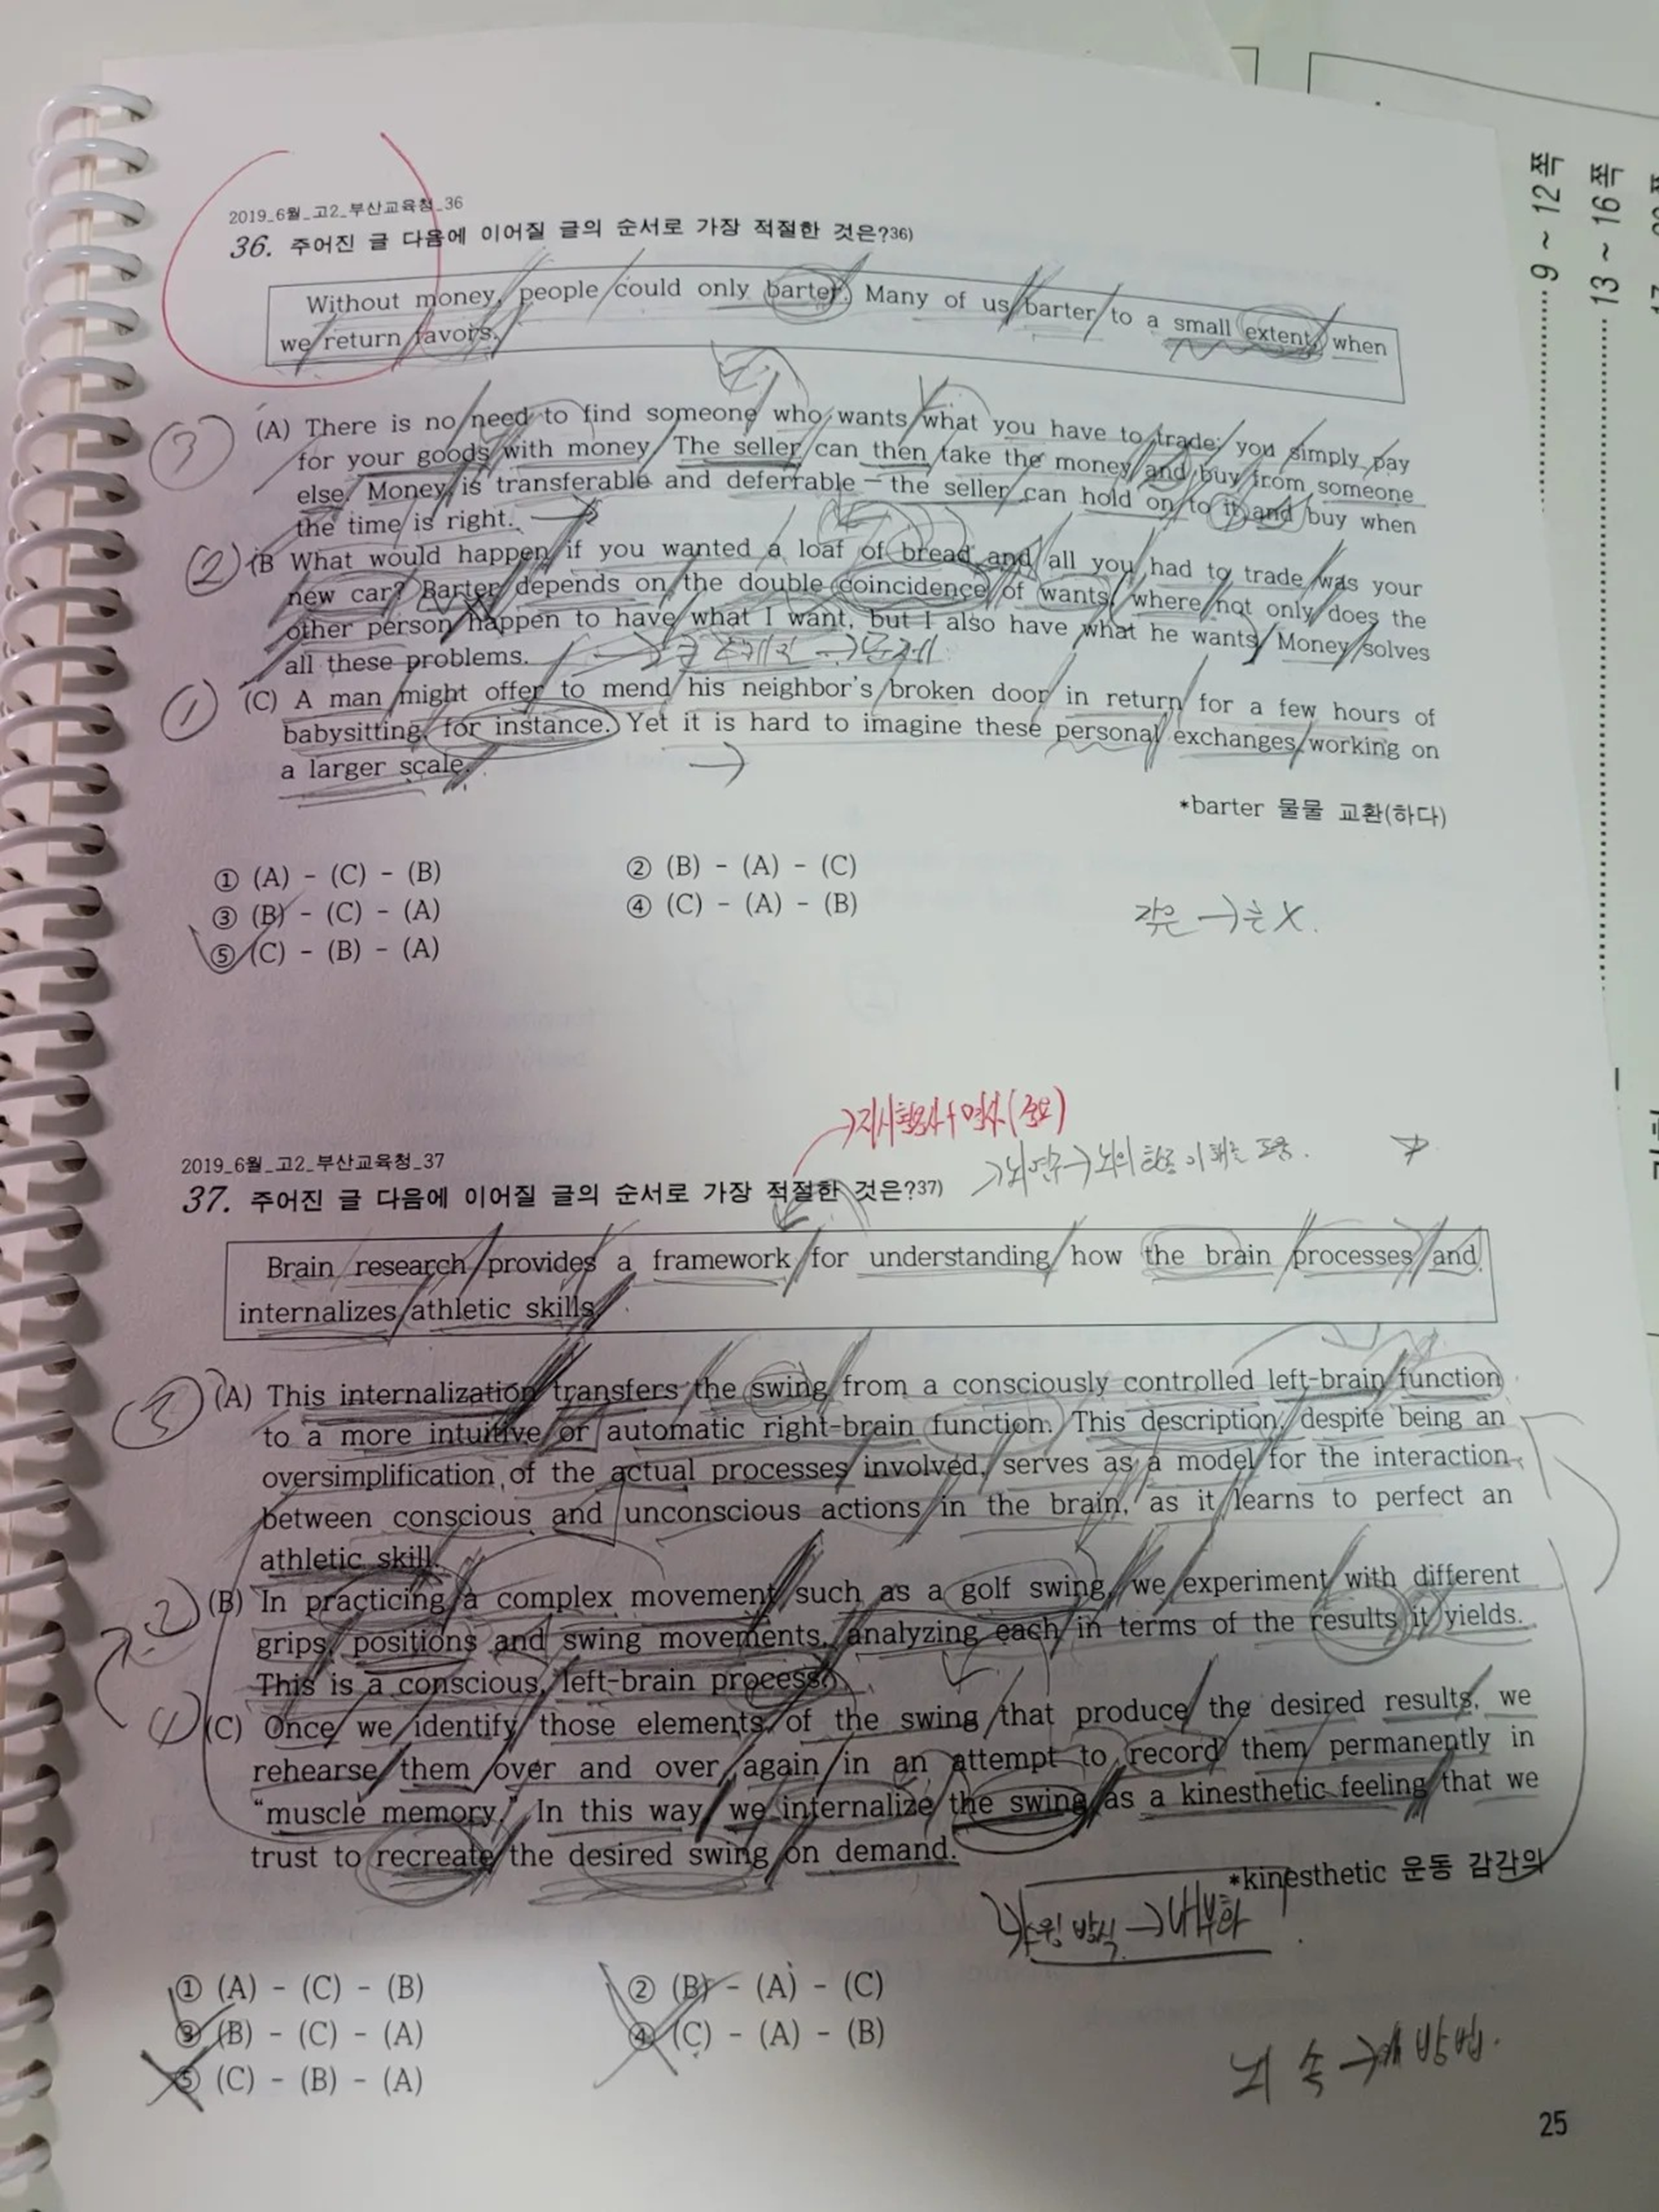 2019_6월_고2_부산교육청_36
36. 주어진 글 다음에 이어질 글의 순서로 가장 적절한 것은?36)
Without money, people could only barter. Many of us barter to a small extent, when
we return favors.
③ (A) There is no need to find someone who wants what you have to trade; you simply pay
for your goods with money. The seller can then take the money and buy from someone
else. Money is transferable and deferrable — the seller can hold on to it and buy when
the time is right.
② (B What would happen if you wanted a loaf of bread and all you had to trade was your
new car? Barter depends on the double coincidence of wants, where not only does the
other person happen to have what I want, but I also have what he wants. Money solves
all these problems. → 문제
① (C) A man might offer to mend his neighbor's broken door in return for a few hours of
babysitting, for instance. Yet it is hard to imagine these personal exchanges working on
a larger scale. →
*barter 물물 교환(하다)
① (A) - (C) - (B) ② (B) - (A) - (C)
③ (B) - (C) - (A) ④ (C) - (A) - (B)
⑤ (C) - (B) - (A)
작은 → 는 X.
→지시형용사+명사(중요)
2019_6월_고2_부산교육청_37
→뇌연구→뇌의
37. 주어진 글 다음에 이어질 글의 순서로 가장 적절한 것은?37)
Brain research provides a framework for understanding how the brain processes and
internalizes athletic skills.
③ (A) This internalization transfers the swing from a consciously controlled left-brain function
to a more intuitive or automatic right-brain function. This description, despite being an
oversimplification of the actual processes involved, serves as a model for the interaction
between conscious and unconscious actions in the brain, as it learns to perfect an
athletic skill.
2 (B) In practicing a complex movement such as a golf swing, we experiment with different
grips, positions and swing movements, analyzing each in terms of the results it yields.
This is a conscious, left-brain process.
1 (C) Once we identify those elements of the swing that produce the desired results, we
rehearse them over and over again in an attempt to record them permanently in
“muscle memory.” In this way, we internalize the swing as a kinesthetic feeling that we
trust to recreate the desired swing on demand.
*kinesthetic 운동 감각의
스윙 방식→내부화
① (A) - (C) - (B) ② (B) - (A) - (C)
③ (B) - (C) - (A) ④ (C) - (A) - (B)
⑤ (C) - (B) - (A)
뇌 속 → 방법.
25
9 ~ 12쪽
13 ~ 16쪽